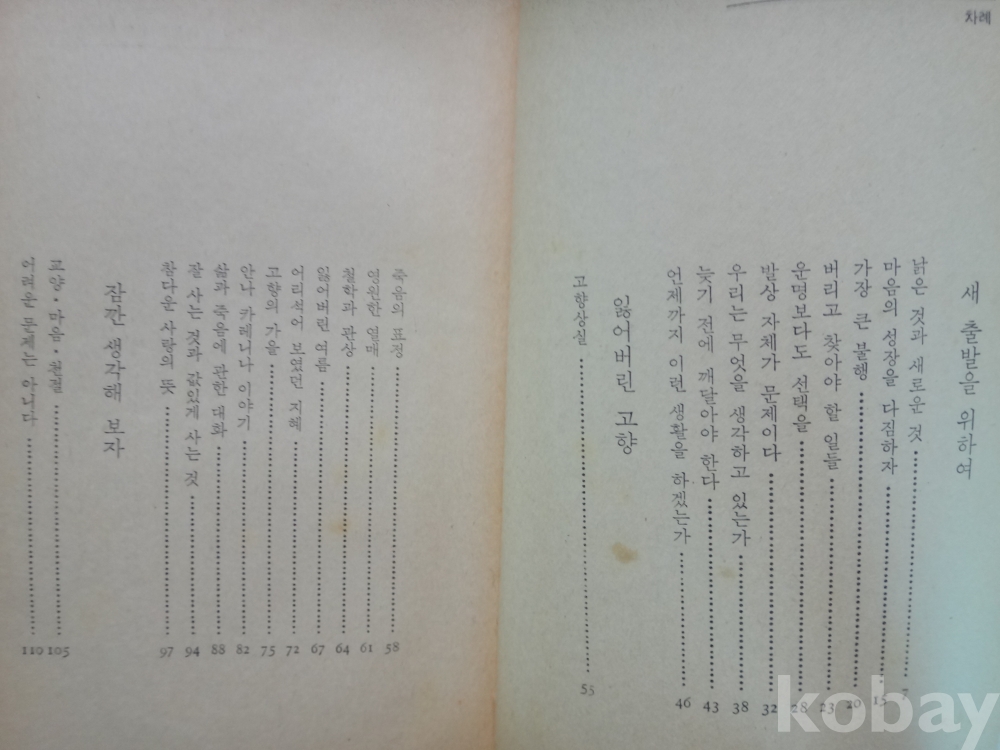 차례
새 출발을 위하여
낡은 것과 새로운 것 7
마음의 성장을 다짐하자 15
가장 큰 불행 20
버리고 찾아야 할 일들 23
운명보다도 선택을 28
발상 자체가 문제이다 32
우리는 무엇을 생각하고 있는가 38
늦기 전에 깨달아야 한다 43
언제까지 이런 생활을 하겠는가 46
잃어버린 고향
고향상실 55
죽음의 표정 58
영원한 열매 61
철학과 관상 64
잃어버린 여름 67
어리석어 보였던 지혜 72
고향의 가을 75
안나 카레니나 이야기 82
삶과 죽음에 관한 대화 88
참 사는 것과 값있게 사는 것 94
참다운 사랑의 뜻 97
잠깐 생각해 보자
교양・마음・친절 105
어려운 문제는 아니다 110
kobay